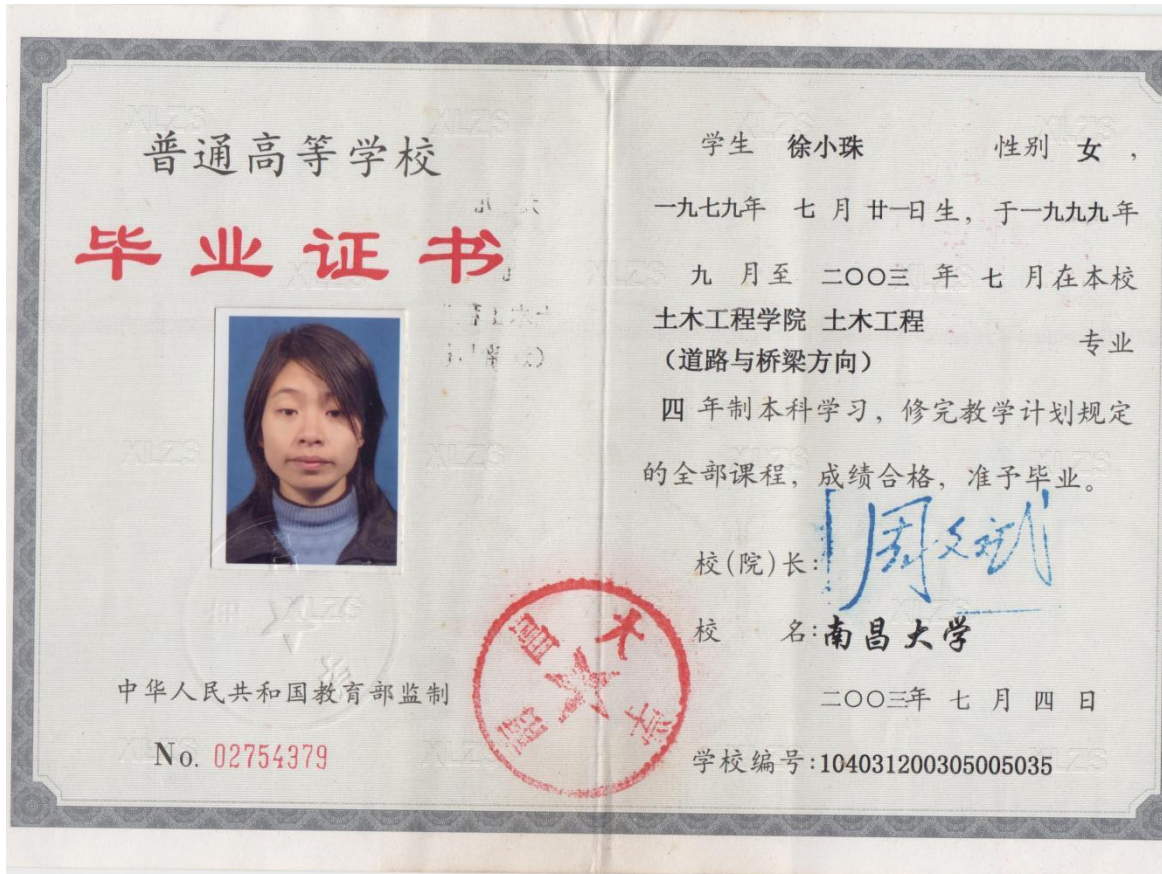 普通高等学校
毕业证书
中华人民共和国教育部监制
No. 02754379
学生 徐小珠 性别 女，
一九七九年 七 月 廿一日生，于一九九九年
九 月至 二〇〇三 年 七 月在本校
土木工程学院 土木工程
（道路与桥梁方向）
专业
四 年制本科学习，修完教学计划规定
的全部课程，成绩合格，准予毕业。
校(院)长：周文斌
校 名：南昌大学
二〇〇三年 七 月 四 日
学校编号：104031200305005035
南昌大学
XLZS